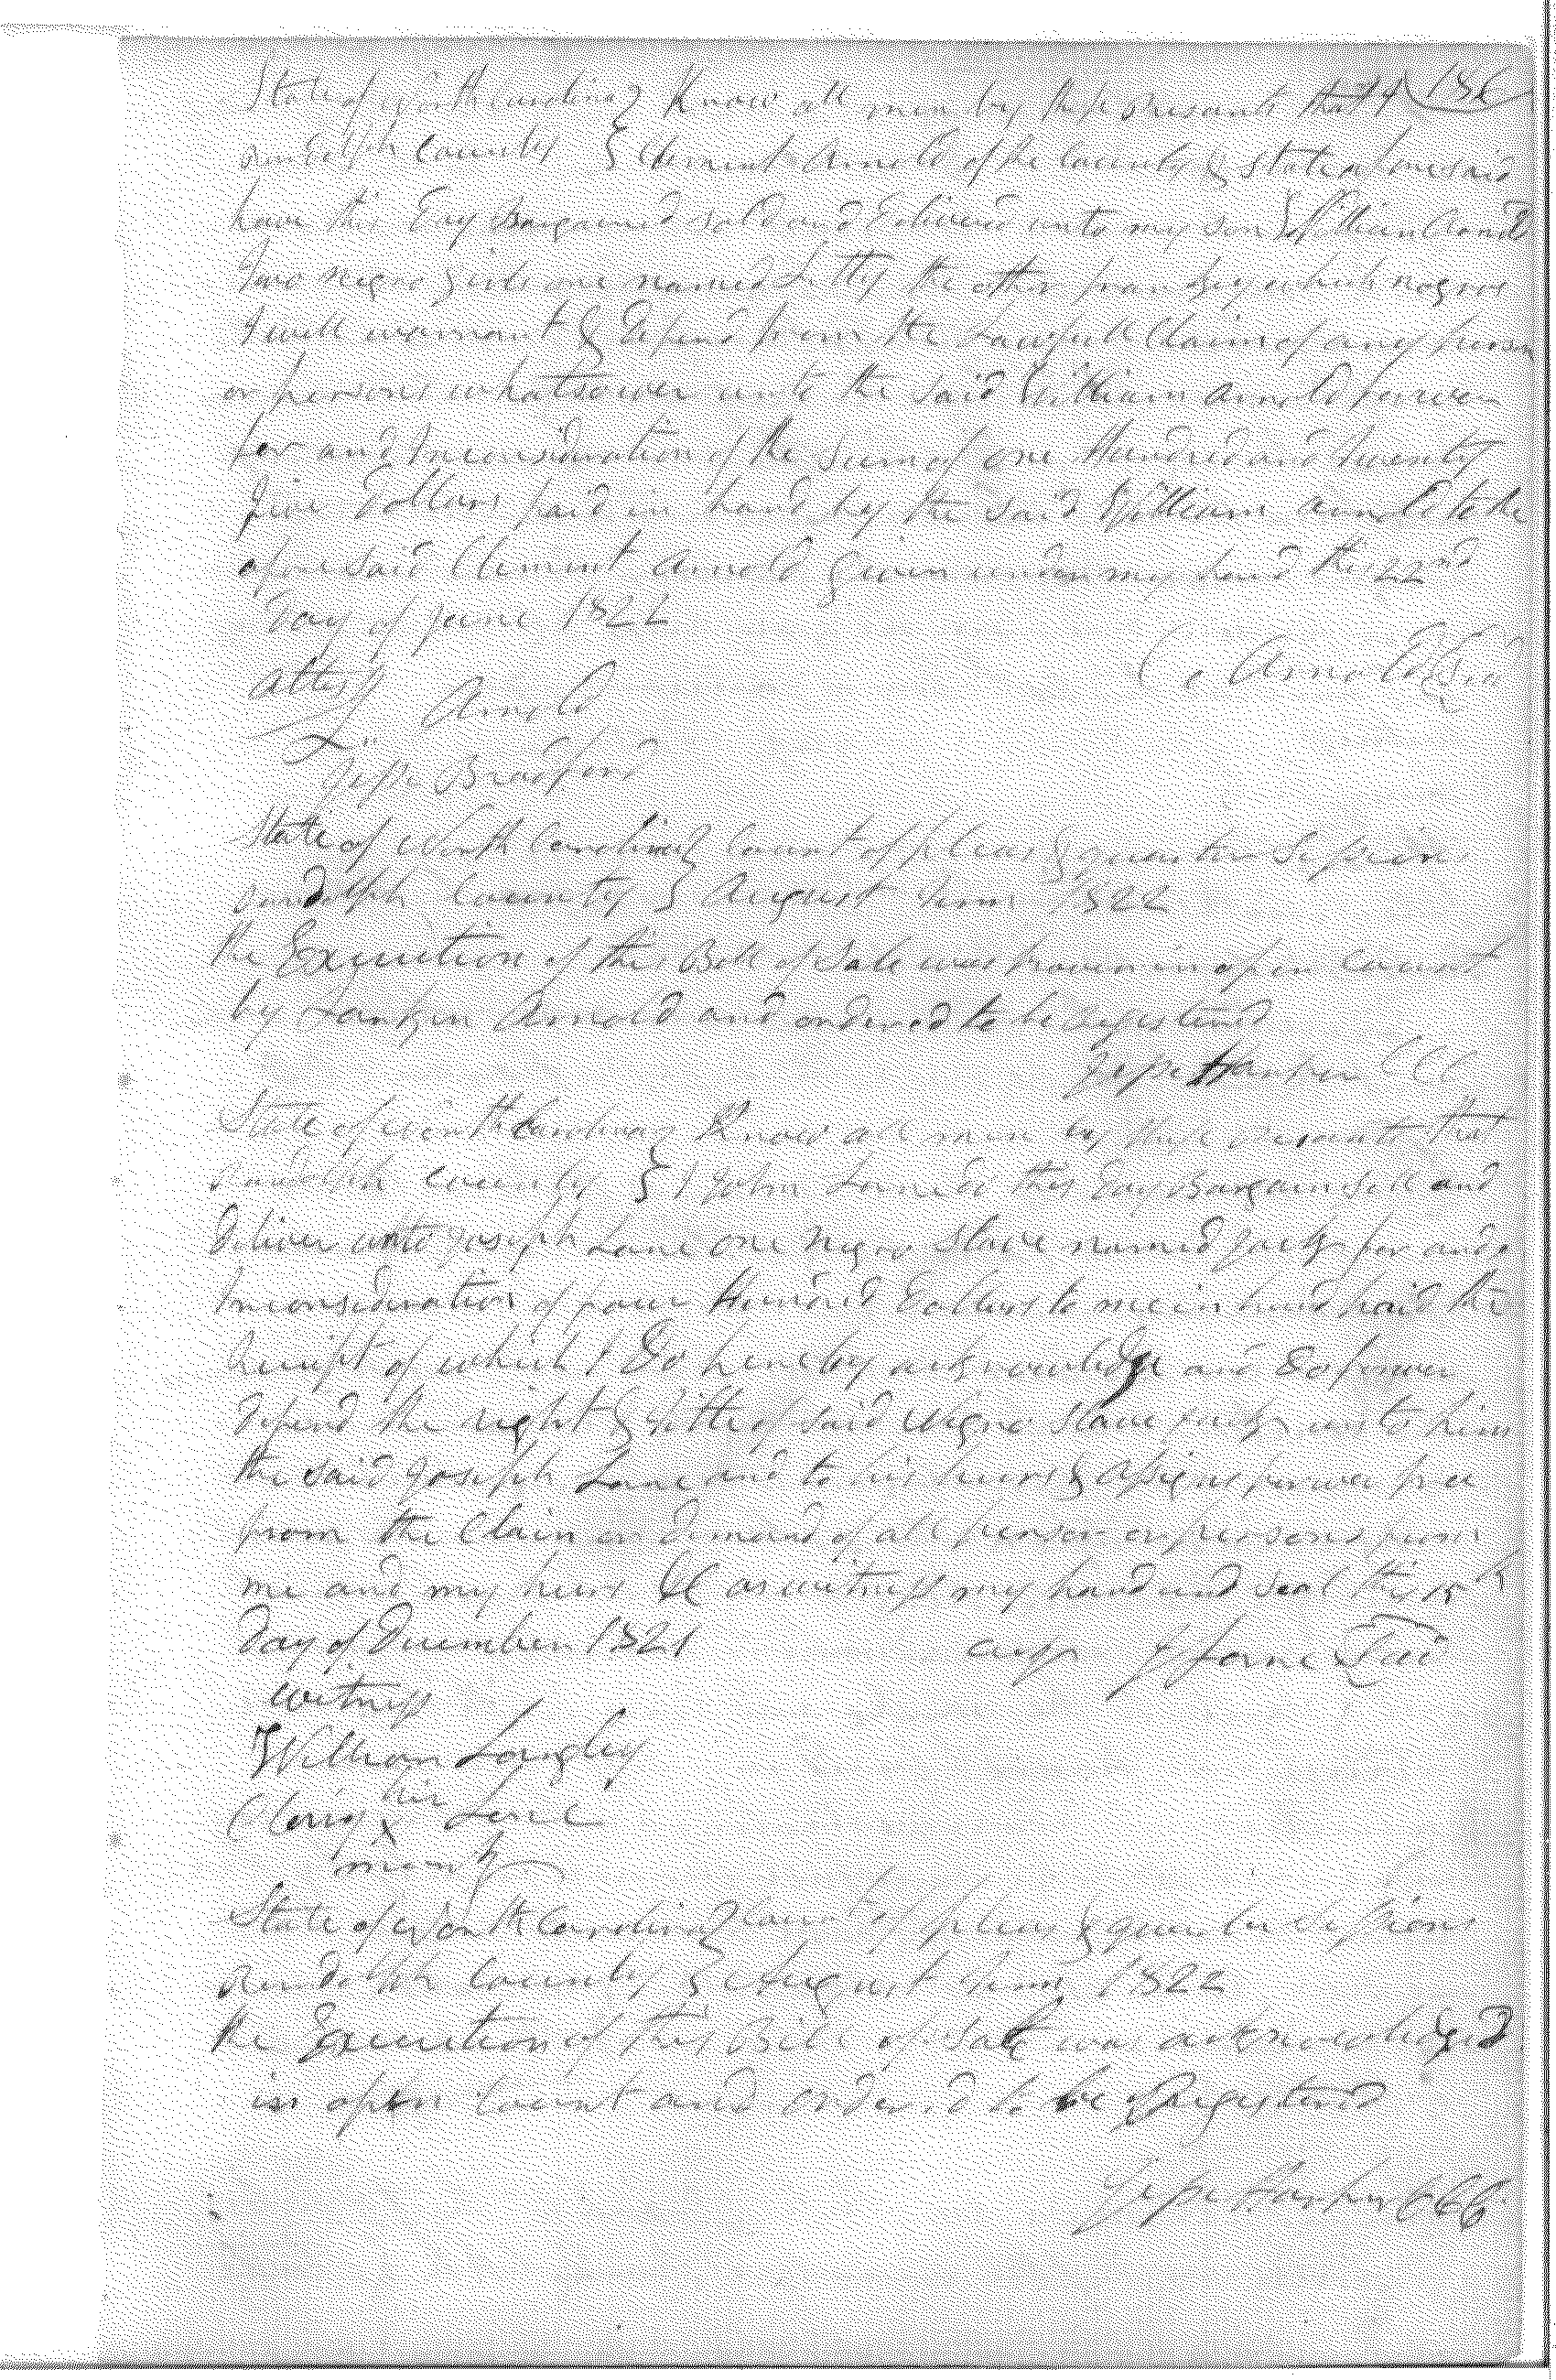 State of North Carolina } Know all men by these presents that I
Randolph County } Clement Arnold of the County & State aforesaid
have this Day Bargained sold and Delivered unto my son William Arnold
Two negro girls one named Letty the other frankey which negros
I will warrant & Defend from the Lawfull Claim of any person
or persons whatsoever unto the said William Arnold forever
for and Inconsideration of the Sum of one Hundred and twenty
five Dollars paid in hand by the said William Arnold to the
afore said Clement Arnold Given under my hand the 22nd
Day of June 1822
C. Arnold Seal
attest
Arnold
Jesse Bradford
State of North Carolina } Court of pleas & quarter Sessions
Randolph County } August term 1822
the Execution of this Bill of Sale was proven in open Court
by Arnold and ordered to be Registered
Jesse Harper CCC
State of North Carolina } Know all men by these presents that
Randolph County } I John Lane do this Day Bargain Sell and
Deliver unto Joseph Lane one Negro Slave named Jack for and
Inconsideration of four Hundred Dollars to me in hand paid the
Receipt of which I Do hereby acknowledge and Do forever
Defend the right & title of said Negro Slave Jack unto him
the said Joseph Lane and to his heirs & assigns forever free
from the Claim or Demand of all person or persons from
me and my heirs &C as witness my hand and seal this 15th
Day of December 1821
Lane Seal
witness
William Langley
his
x Lane
mark
State of North Carolina } Court of pleas & quarter Sessions
Randolph County } August Term 1822
the Execution of this Bill of Sale was acknowledged
in open Court and order.d to be Registered
Jesse Harper CCC